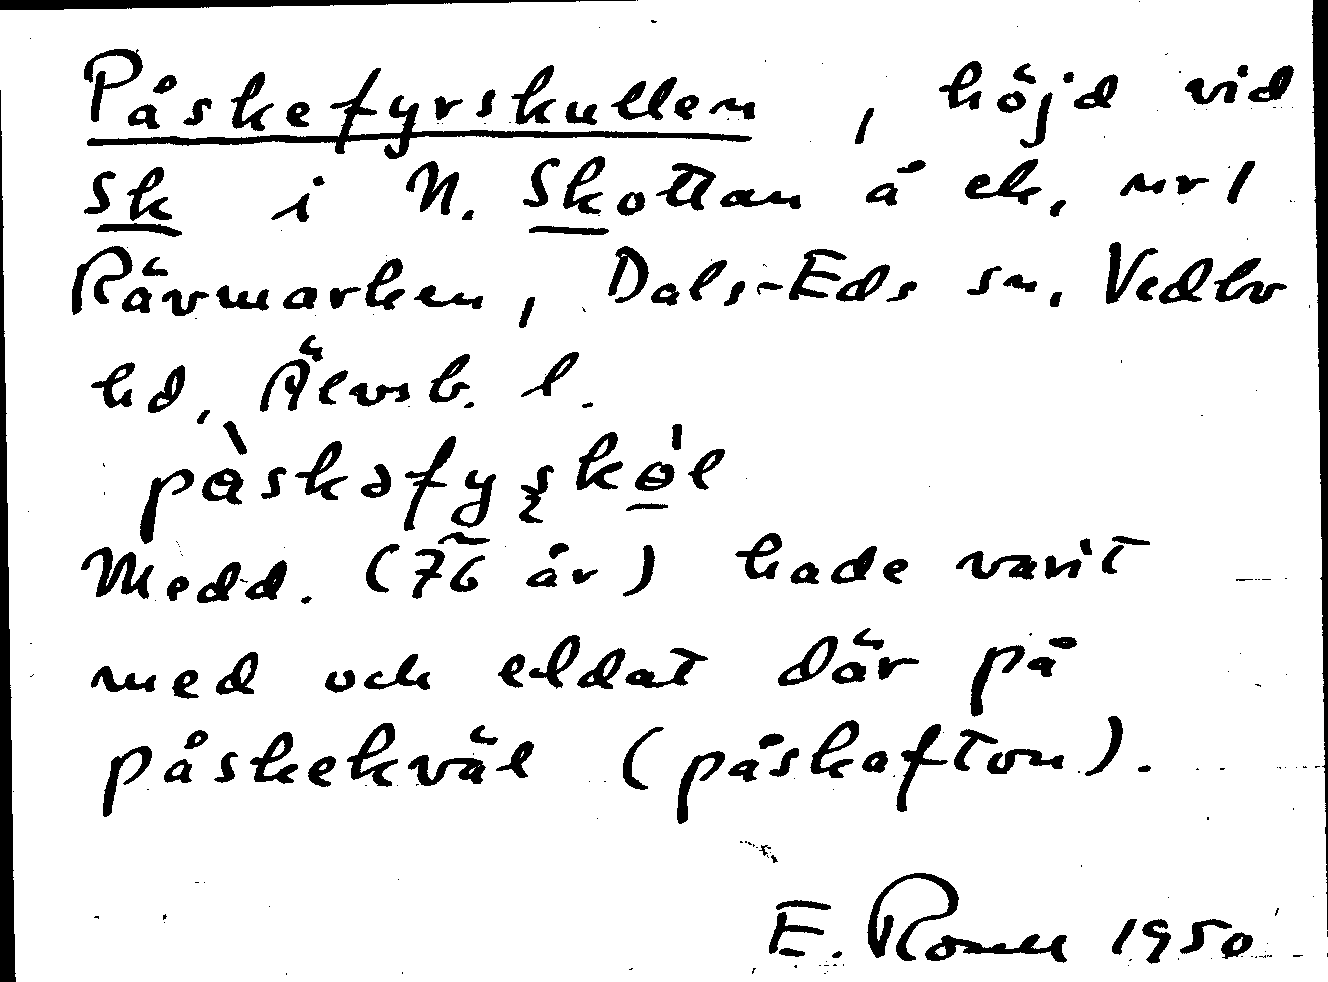 Påskefyrskullen, höjd vid
Sk i N. Skottan å ek, nr 1
Rävmarken, Dals-Eds sn, Vedbo
hd, Älvsb. l.
pàskəfyʂkɵ̠l
Medd. (76 år) hade varit
med och eldat där på
påskekväl (påskafton).
E. Rosell 1950